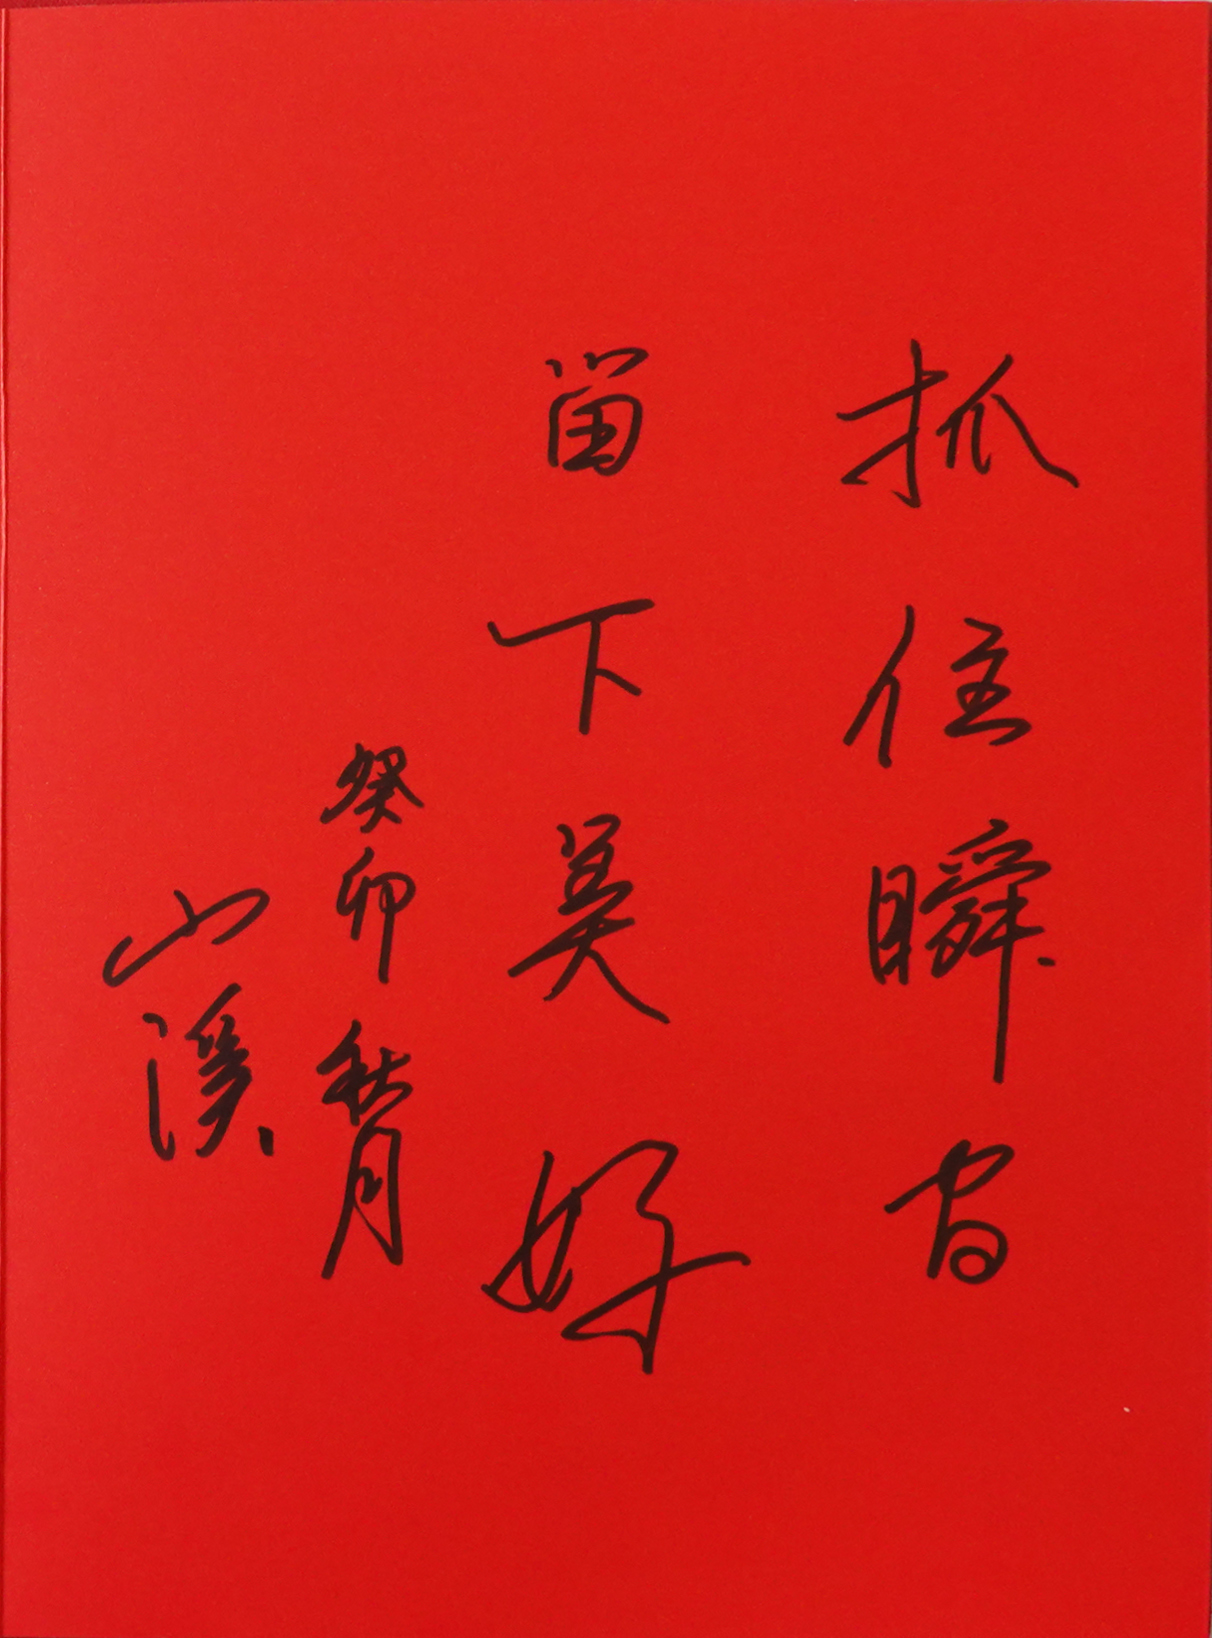 抓住瞬间
留下美好
癸卯秋月
溪